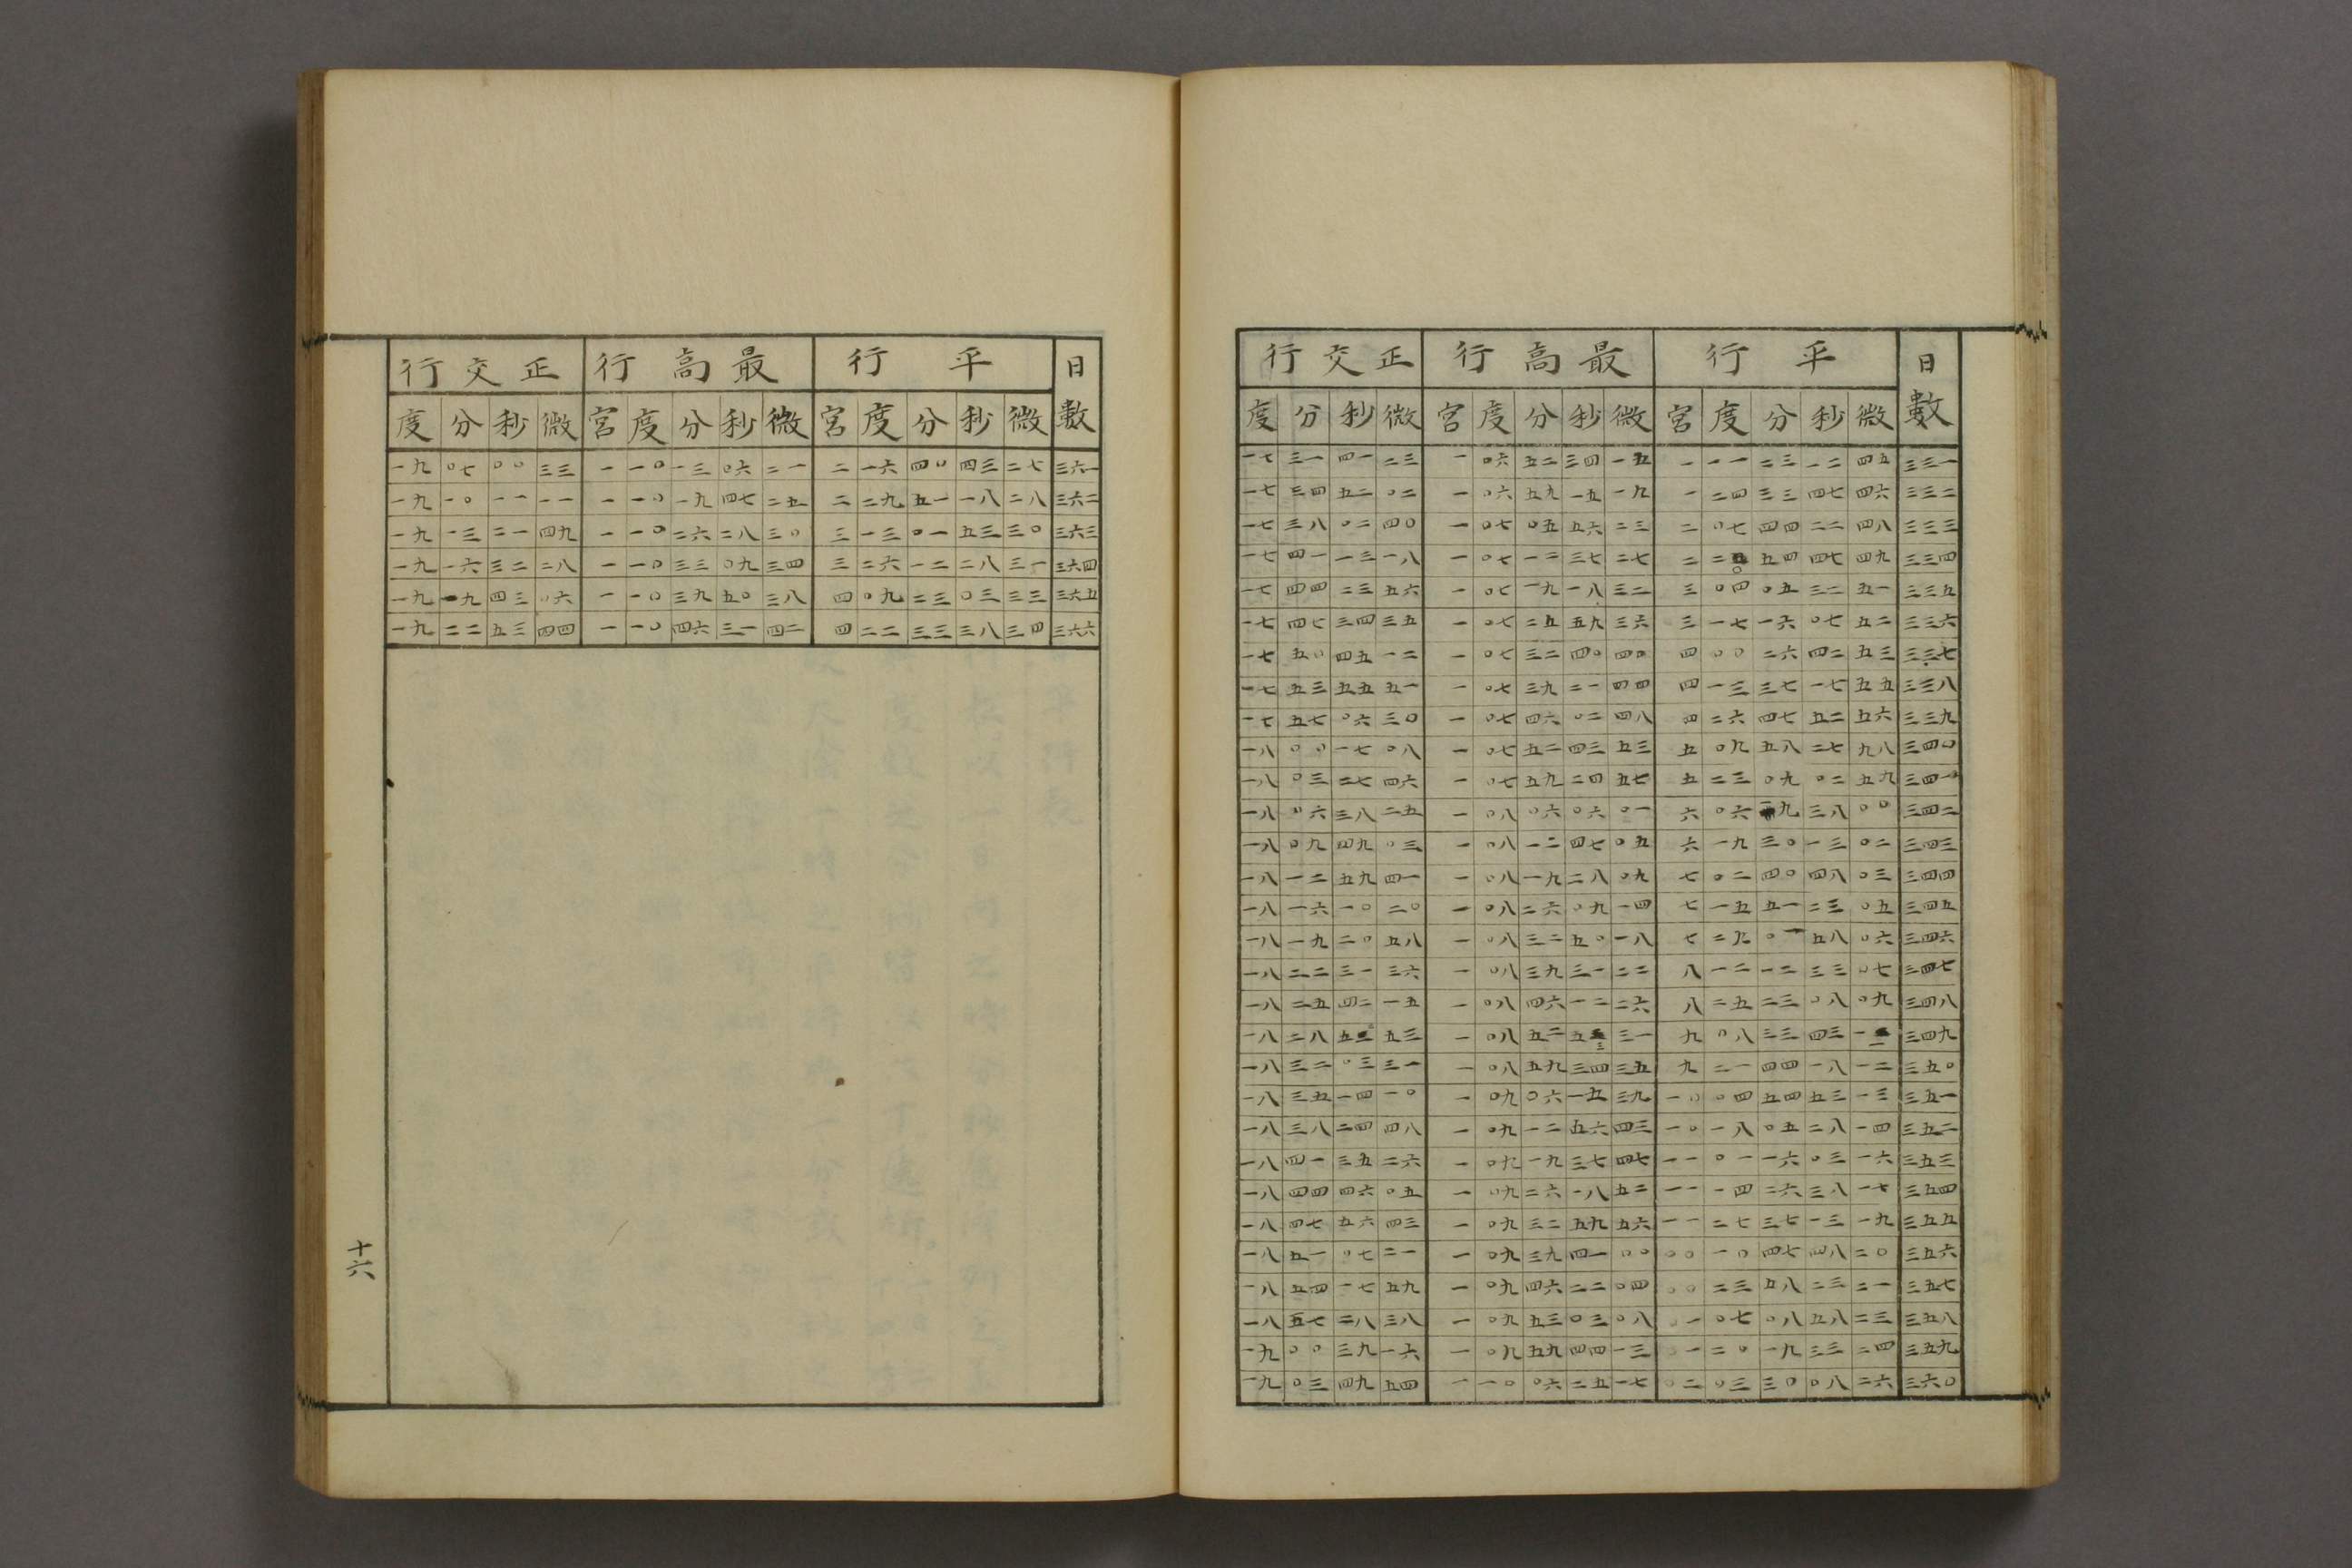 日數 平行 最高行 正交行
度 分 秒 微 宮 度 分 秒 微 宮 度 分 秒 微
一七 三一 四一 二三 一 〇六 五二 三四 一五 一 一一 二三 一二 四五 三三一
一七 三四 五二 〇二 一 〇六 五九 一五 一九 一 二四 三三 四七 四六 三三二
一七 三八 〇二 四〇 一 〇七 〇五 五六 二三 二 〇七 四四 二二 四八 三三三
一七 四一 一三 一八 一 〇七 一二 三七 二七 二 二〇 五四 四七 四九 三三四
一七 四四 二三 五六 一 〇七 一九 一八 三二 三 〇四 〇五 三二 五一 三三五
一七 四七 三四 三五 一 〇七 二五 五九 三六 三 一七 一六 〇七 五二 三三六
一七 五〇 四五 一二 一 〇七 三二 四〇 四〇 四 〇〇 二六 四二 五三 三三七
一七 五三 五五 五一 一 〇七 三九 二一 四四 四 一三 三七 一七 五五 三三八
一七 五七 〇六 三〇 一 〇七 四六 〇二 四八 四 二六 四七 五二 五六 三三九
一八 〇〇 一七 〇八 一 〇七 五二 四三 五三 五 〇九 五八 二七 九八 三四〇
一八 〇三 二七 四六 一 〇七 五九 二四 五七 五 二三 〇九 〇二 五九 三四一
一八 〇六 三八 二五 一 〇八 〇六 〇六 〇一 六 〇六 一九 三八 〇〇 三四二
一八 〇九 四九 〇三 一 〇八 一二 四七 〇五 六 一九 三〇 一三 〇二 三四三
一八 一二 五九 四一 一 〇八 一九 二八 〇九 七 〇二 四〇 四八 〇三 三四四
一八 一六 一〇 二〇 一 〇八 二六 〇九 一四 七 一五 五一 二三 〇五 三四五
一八 一九 二〇 五八 一 〇八 三二 五〇 一八 七 二九 〇一 五八 〇六 三四六
一八 二二 三一 三六 一 〇八 三九 三一 二二 八 一二 一二 三三 〇七 三四七
一八 二五 四二 一五 一 〇八 四六 一二 二六 八 二五 二三 〇八 〇九 三四八
一八 二八 五二 五三 一 〇八 五二 五三 三一 九 〇八 三三 四三 一一 三四九
一八 三二 〇三 三一 一 〇八 五九 三四 三五 九 二一 四四 一八 一二 三五〇
一八 三五 一四 一〇 一 〇九 〇六 一五 三九 一〇 〇四 五四 五三 一三 三五一
一八 三八 二四 四八 一 〇九 一二 五六 四三 一〇 一八 〇五 二八 一四 三五二
一八 四一 三五 二六 一 〇九 一九 三七 四七 一一 〇一 一六 〇三 一六 三五三
一八 四四 四六 〇五 一 〇九 二六 一八 五二 一一 一四 二六 三八 一七 三五四
一八 四七 五六 四三 一 〇九 三二 五九 五六 一一 二七 三七 一三 一九 三五五
一八 五一 〇七 二一 一 〇九 三九 四一 〇〇 〇〇 一〇 四七 四八 二〇 三五六
一八 五四 一七 五九 一 〇九 四六 二二 〇四 〇〇 二三 五八 二三 二一 三五七
一八 五七 二八 三八 一 〇九 五三 〇三 〇八 〇一 〇七 〇八 五八 二三 三五八
一九 〇〇 三九 一六 一 〇九 五九 四四 一三 〇一 二〇 一九 三三 二四 三五九
一九 〇三 四九 五四 一 一〇 〇六 二五 一七 〇二 〇三 三〇 〇八 二六 三六〇
日數 平行 最高行 正交行
度 分 秒 微 宮 度 分 秒 微 宮 度 分 秒 微
一九 〇七 〇〇 三三 一 一〇 一三 〇六 二一 二 一六 四〇 四三 二七 三六一
一九 一〇 一一 一一 一 一〇 一九 四七 二五 二 二九 五一 一八 二八 三六二
一九 一三 二一 四九 一 一〇 二六 二八 三〇 三 一三 〇一 五三 三〇 三六三
一九 一六 三二 二八 一 一〇 三三 〇九 三四 三 二六 一二 二八 三一 三六四
一九 一九 四三 〇六 一 一〇 三九 五〇 三八 四 〇九 二三 〇三 三三 三六五
一九 二二 五三 四四 一 一〇 四六 三一 四二 四 二二 三三 三八 三四 三六六
十六